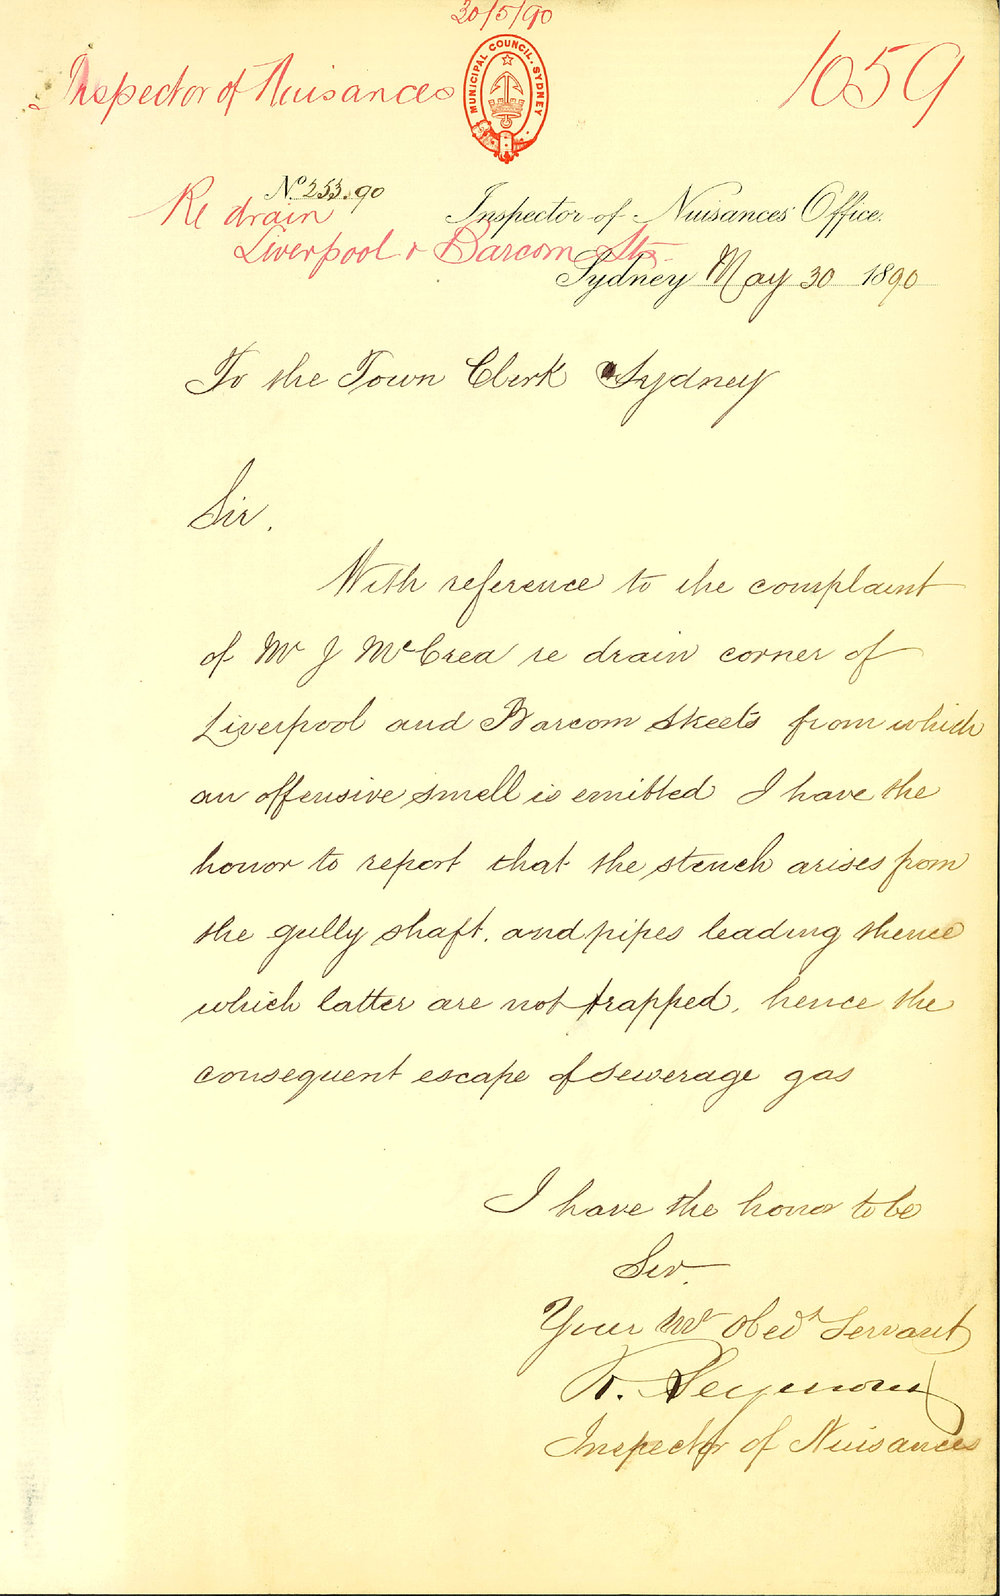 30/5/90
Inspector of Nuisances
MUNICIPAL COUNCIL. SYDNEY
1059
No 253.90
Re drain
Inspector of Nuisances Office.
Liverpool & Barcom Sts
Sydney May 30 1890
To the Town Clerk Sydney
Sir.
With reference to the complaint
of Mr J McCrea re drain corner of
Liverpool and Barcom Streets from which
an offensive smell is emitted I have the
honor to report that the stench arises from
the gully shaft. and pipes leading thence
which latter are not trapped, hence the
consequent escape of sewerage gas
I have the honor to be
Sir.
Your Mt Obedt Servant
R. Seymour
Inspector of Nuisances